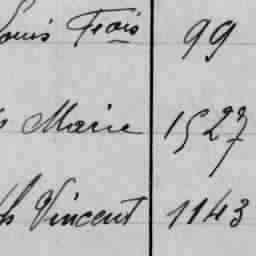 Louis Frois 99
Marie 1527
Vincent 1143